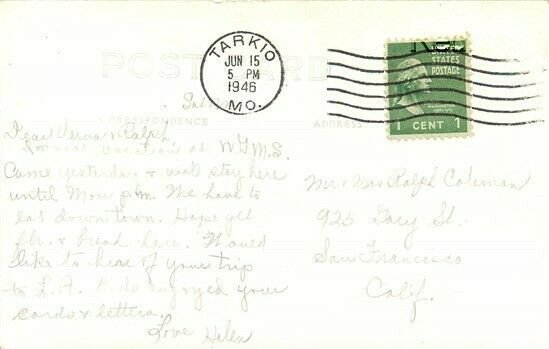 TARKIO
JUN 15
5 PM
1946
MO.
UNITED
STATES
POSTAGE
1 CENT 1
POST CARD
CORRESPONDENCE
ADDRESS
Dear Verna & Ralph
vacation at W.I.M.S.
Came yesterday & will stay here
until Mon p.m. We have to
eat down town. Hope get
& bread here. Would
like to hear of your trip
to L.A. Kids enjoyed your
cards & letters.
Love Helen
Mr & Mrs Ralph Coleman
925 Gary St.
San Francisco
Calif.